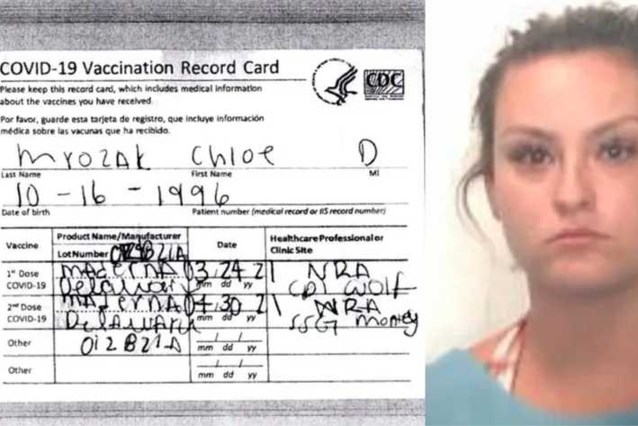 COVID-19 Vaccination Record Card
CDC
Please keep this record card, which includes medical information
about the vaccines you have received.
Por favor, guarde esta tarjeta de registro, que incluye información
médica sobre las vacunas que ha recibido.
Mrozak Chloe D
Last Name First Name MI
10-16-1996
Date of birth Patient number (medical record or IIS record number)
Vaccine Product Name/Manufacturer Date Healthcare Professional or
Lot Number Clinic Site
1st Dose Maderna 03.24.21 NRA
COVID-19 Delaware mm dd yy CPT Wolf
2nd Dose Maderna 04.30.21 NRA
COVID-19 mm dd yy SSGT
Other 012B21A
mm dd yy
Other
mm dd yy